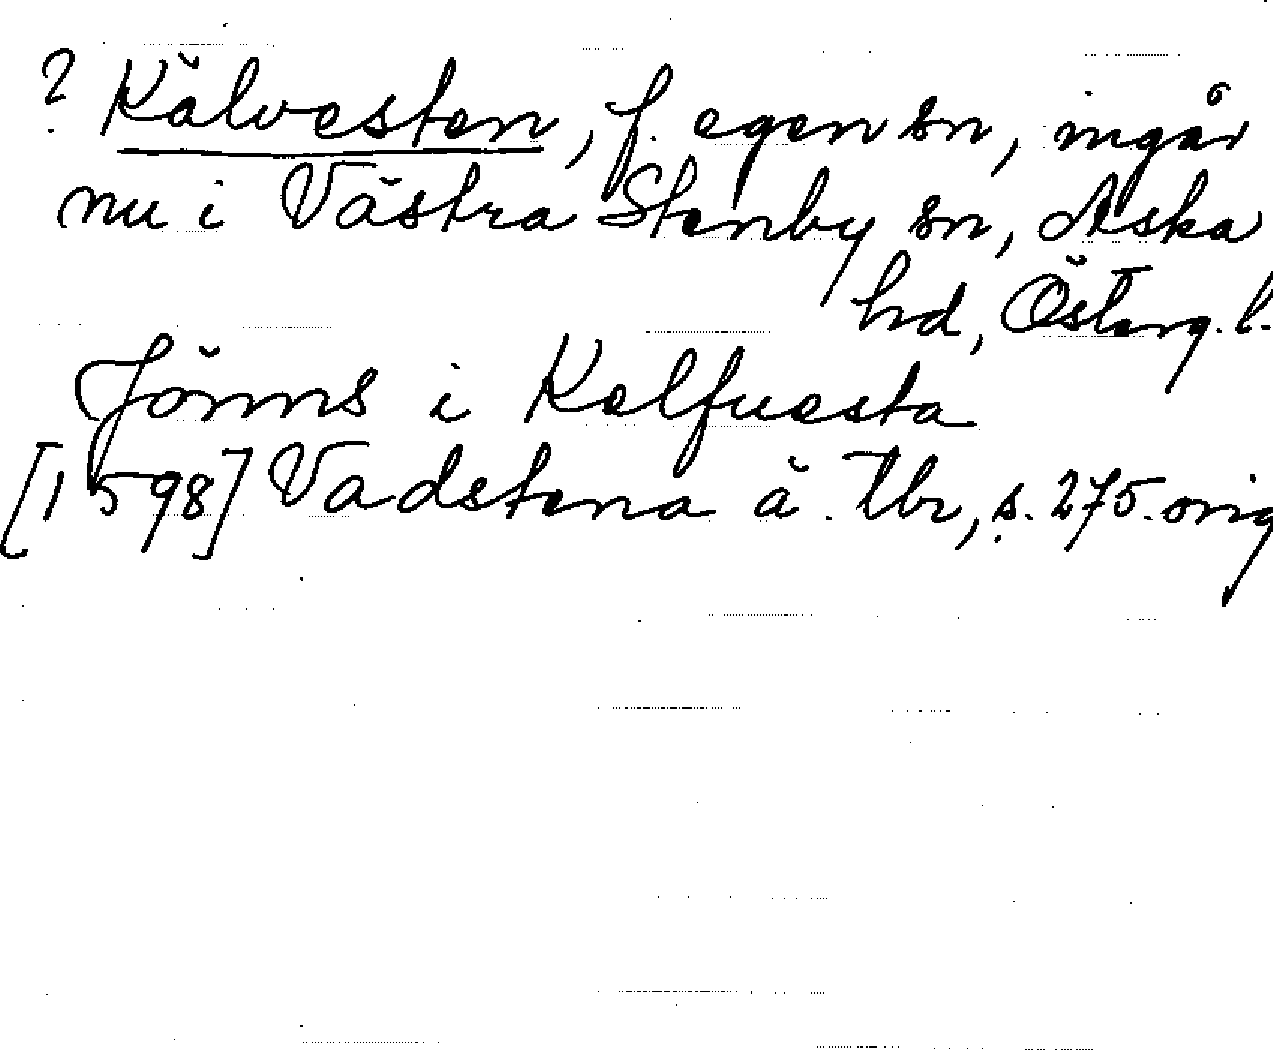 ? Kälvesten, f. egen sn, ingår
nu i Västra Stenby sn, Aska
hd, Österg. l.
Jönns i Kelfuesta
[1598] Vadstena ä. tbr, s. 275. orig